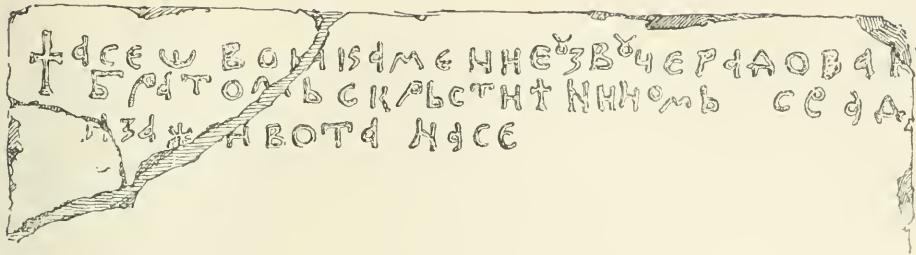 † АСЕ Ѡ ВОИ КАМЕНИЕ ꙊЗВꙊЧЕ РАДОВАН
БРАТОМЬ СКРЬСТИѢНИНОМЬ СЕ РАД
ИЗА ЖИВОТА НАСЕ